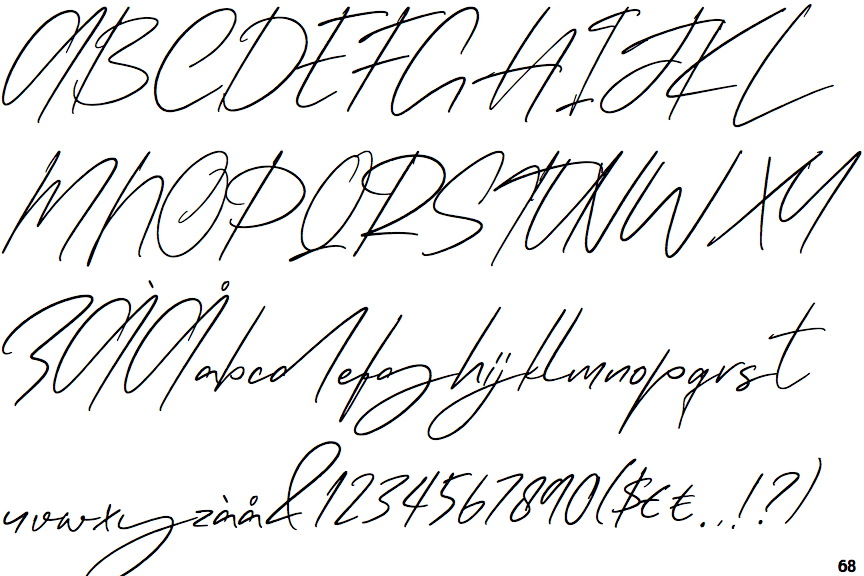 ABCDEFGHIJKL
MNOPQRSTUVWXY
ZÀÅabcdefghijklmnopqrst
uvwxyzàå&1234567890($€£.,!?)
68